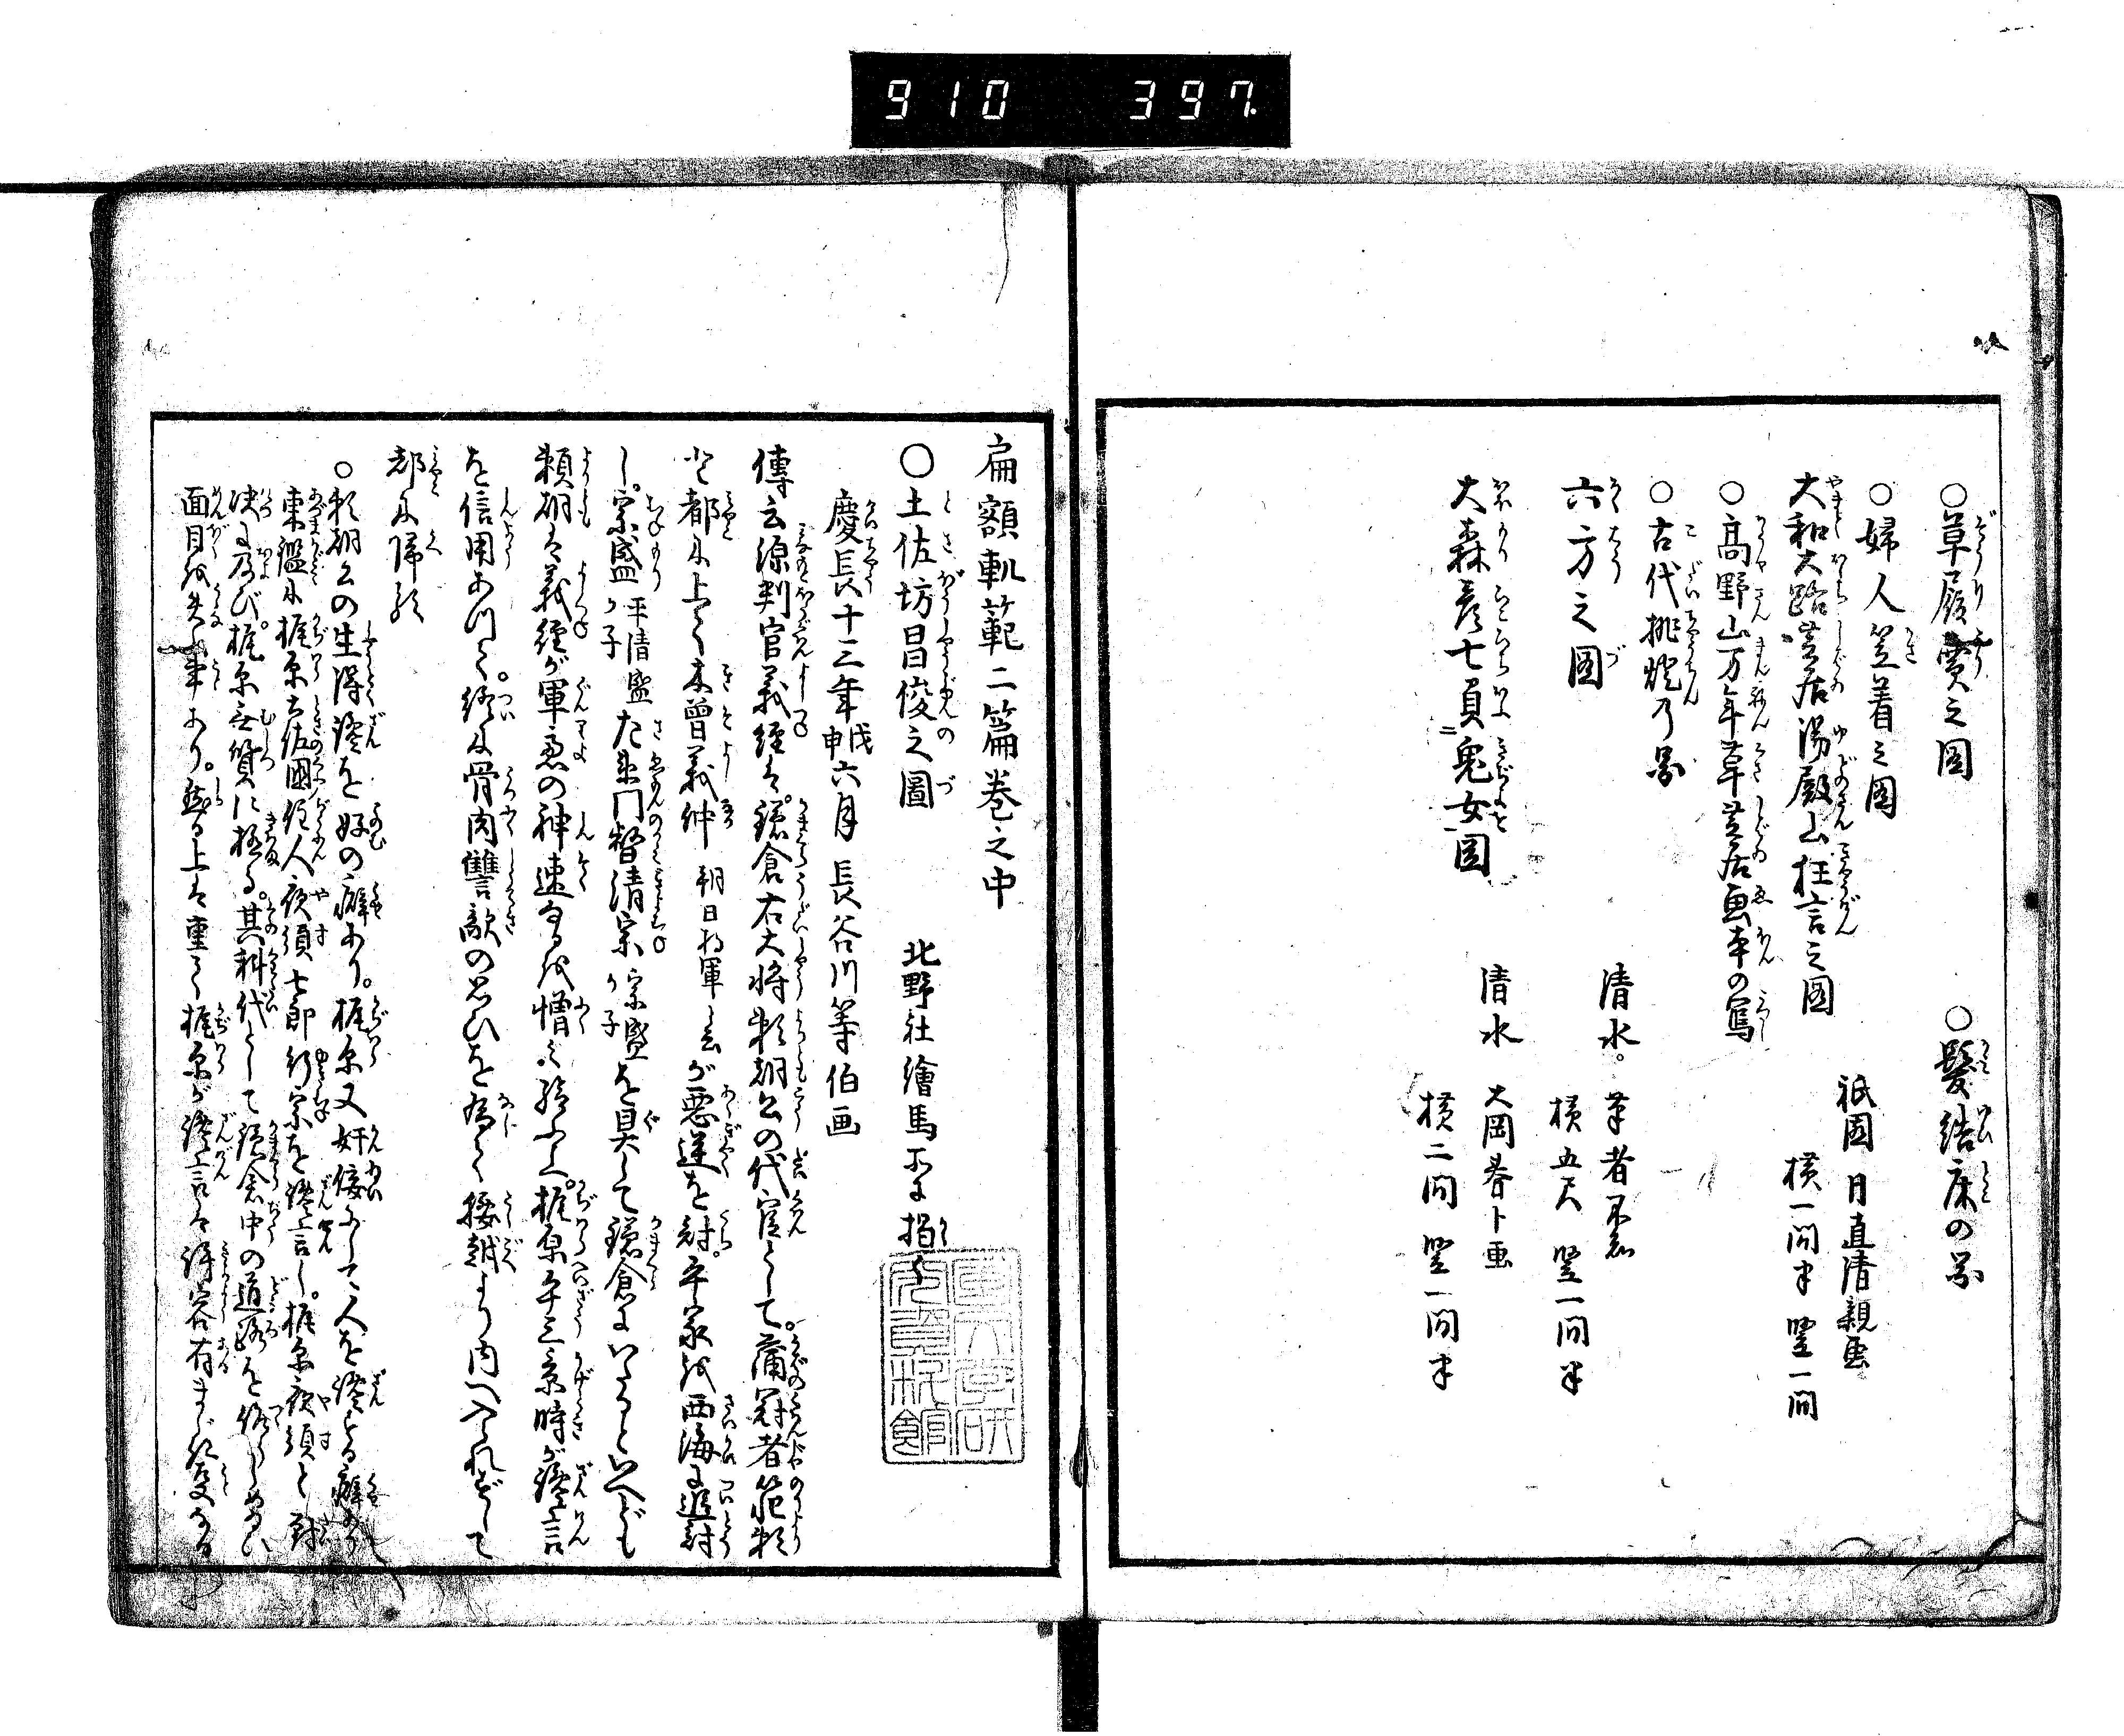 910 397.
○草履賣之図 ○髪結床の畧
○婦人笠着之図
祇園 月直清親画
大和大路芝居湯殿山狂言之図
横一間半 竪一間
○高野山万年草芝居画本の寫
○古代挑燈乃畧
清水 筆者不知
六方之図
横五尺 竪一間半
清水 大岡春卜画
大森彦七負鬼女図
横二間 竪一間半
扁額軌範二篇巻之中
○土佐坊昌俊之圖 北野社繪馬所に掲く
慶長十三年戊申六月 長谷川等伯画
傳云源判官義經は鎌倉右大将頼朝公の代官として。蒲冠者範頼
と都に上りて木曽義仲 朝日将軍と云 が悪逆を討。平家を西海に追討
し。宗盛 平清盛が子 左衛門督清宗 宗盛が子 を具して鎌倉にいたるといへども
頼朝は義經が軍慮の神速なるを憎み給ふ上。梶原平三景時が讒言
を信用あつて。終に骨肉讐敵の思ひを為て腰越より内へ入れずして
都に帰る
○頼朝公の生得讒を好の癖あり。梶原又奸佞にして人を讒する癖あり
東鑑に梶原土佐國住人夜須七郎行宗を讒言し。梶原夜須と対
决に及び。梶原無實に極る。其科代として鎌倉中の道路を作らしめらる
面目を失ふ事あり。然る上は重て梶原が讒言は許容有まじき事なる